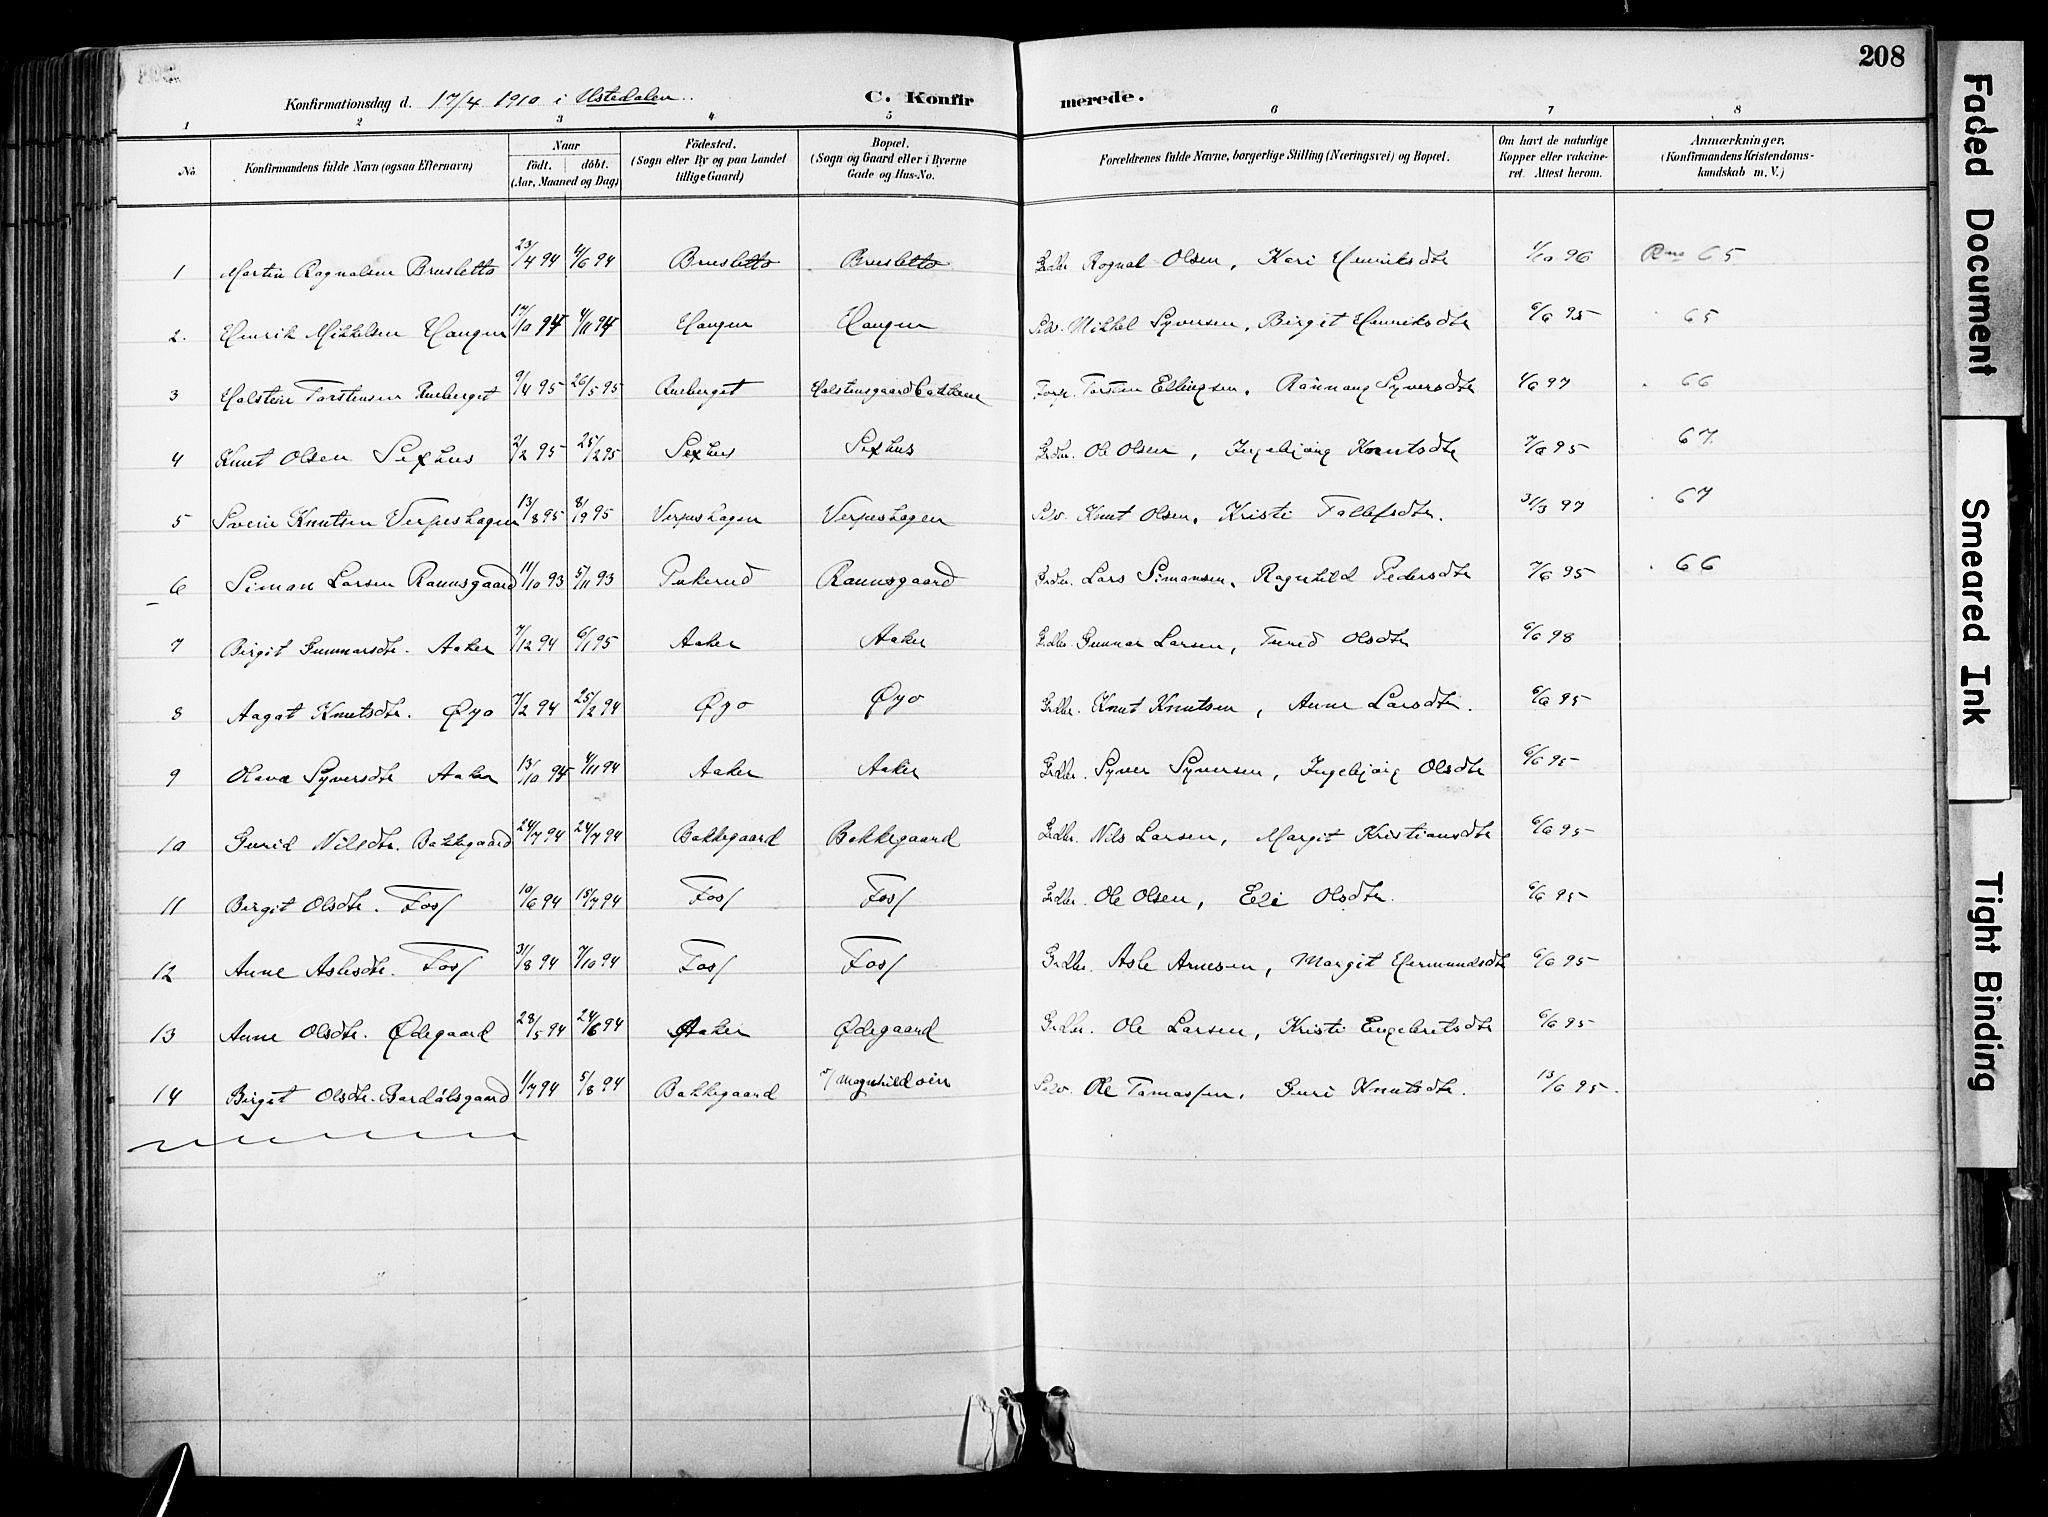 208
Konfirmationsdag d. 17/4 1910 i Ustedalen.. C. Konfirmerede.
1 2 3 4 5 6 7 8
No
Konfirmandens fulde Navn (ogsaa Efternavn)
Naar
født. døbt.
(Aar, Maaned og Dag)
Fødested.
(Sogn eller By og paa Landet
tillige Gaard)
Bopæl.
(Sogn og Gaard eller i Byerne
Gade og Hus-No.
Forældrenes fulde Navne, borgerlige Stilling (Næringsvei) og Bopæl.
Om havt de naturlige
Kopper eller vakcine-
ret. Attest herom.
Anmærkninger.
(Konfirmandens Kristendoms-
kundskab m. V.)
1 Martin Ragnalsen Brusletto 23/4 94 4/6 94 Brusletto Brusletto Grdbr. Rognal Olsen, Kari Henriksdtr 1/10 96 65
2. Henrik Mikkelsen Haugen 17/10 94 4/11 94 Haugen Haugen Selv. Mikkel Syversen, Birgit Henriksdtr 6/6 95 65
3 Halstein Torstensen Rueberget 9/4 95 26/5 95 Rueberget Halstensgaardbakkene Torsten Ellingsen, Rannang Syversdtr 4/6 97 66
4 Knut Olsen Sexhus 2/2 95 25/2 95 Sexhus Sexhus Grdbr. Ole Olsen, Ingebjørg Knutsdtr 7/6 95 67
5 Svein Knutsen Verpeshagen 13/8 95 8/9 95 Verpeshagen Verpeshagen Selv. Knut Olsen, Kristi Tollefsdtr. 3/3 97 67
6 Simon Larsen Raunsgaard 11/10 93 5/11 93 Pukerud Raunsgaard Grdbr. Lars Simonsen, Ragnhild Pedersdtr 7/6 95 66
7 Birgit Gunnarsdtr. Aaker 7/12 94 6/1 95 Aaker Aaker Grdbr. Gunnar Larsen, Turid Olsdtr 6/6 98
8 Aagat Knutsdtr. Øyo 7/2 94 25/2 94 Øyo Øyo Grdbr. Knut Knutsen, Anne Larsdtr. 6/6 95
9 Olava Syversdtr Aaker 13/10 94 4/11 94 Aaker Aaker Grdbr. Syver Syversen, Ingebjørg Olsdtr 6/6 95
10 Gurid Nilsdtr. Bakkegaard 24/7 94 24/7 94 Bakkegaard Bakkegaard Grdbr. Nils Larsen, Margit Kristiansdtr 6/6 95
11 Birgit Olsdtr. Foss 10/6 94 15/7 94 Foss Foss Grdbr. Ole Olsen, Eli Olsdtr. 6/6 95
12 Anne Aslesdtr. Foss 31/8 94 7/10 94 Foss Foss Grdbr. Asle Arnesen, Margit Hermundsdtr 6/6 95
13 Anne Olsdtr. Ødegaard 28/5 94 24/6 94 Aaker Ødegaard Grdbr. Ole Larsen, Kristi Engebretsdtr 6/6 95
14 Birgit Olsdtr. Bardølsgaard 1/7 94 5/8 94 Bakkegaard Magnhildøien Selv. Ole Tomassen, Guri Knutsdtr. 13/6 95.
Faded Document
Smeared Ink
Tight Binding